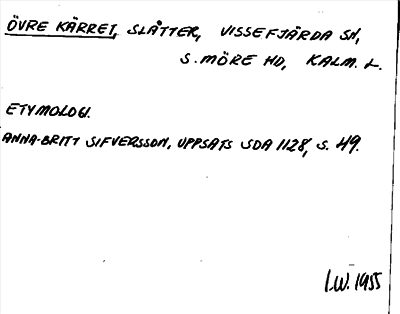 ÖVRE KÄRRET, SLÅTTER, VISSEFJÄRDA SN,
S. MÖRE HD, KALM. L.
ETYMOLOGI.
ANNA-BRITT SIFVERSSON, UPPSATS SDA 1128, S. 49.
I.W. 1955